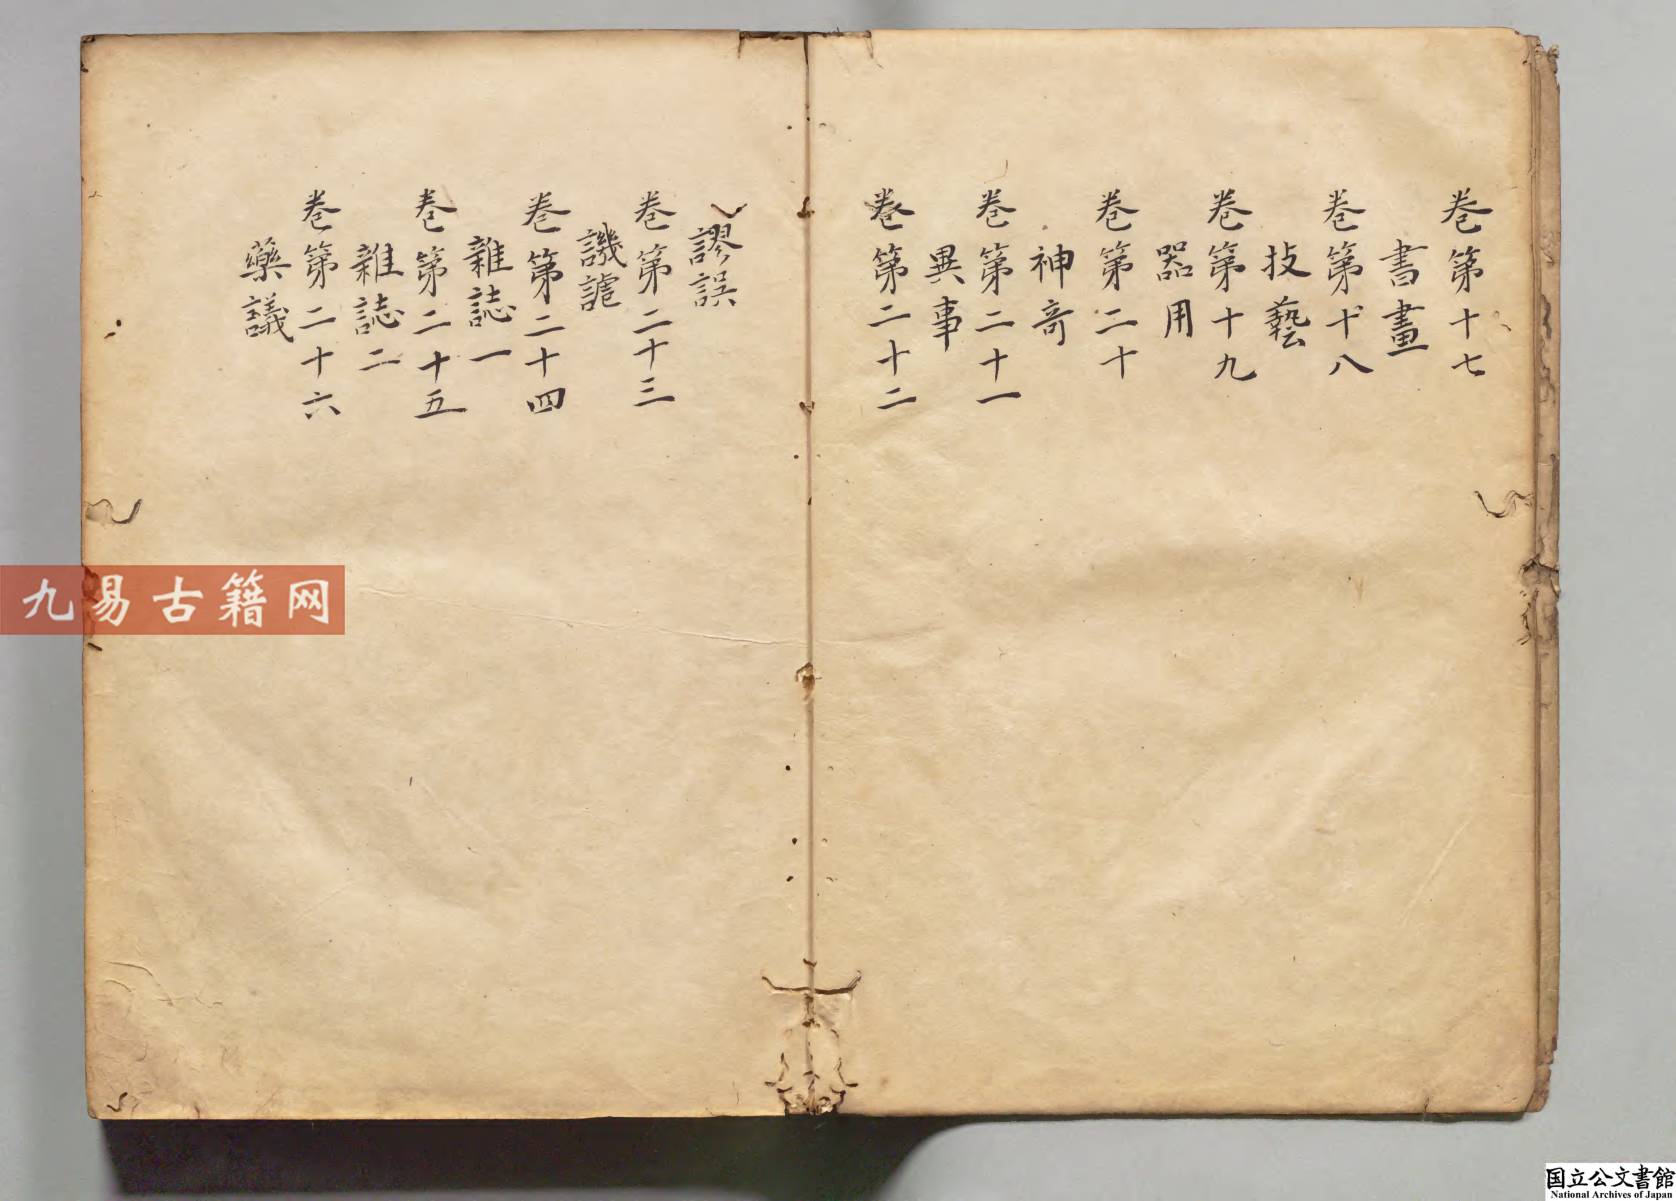 卷第十七
書畫
卷第十八
技藝
卷第十九
器用
卷第二十
神奇
卷第二十一
異事
卷第二十二
謬誤
卷第二十三
譏謔
卷第二十四
雜誌一
卷第二十五
雜誌二
卷第二十六
藥議
九易古籍网
国立公文書館
National Archives of Japan